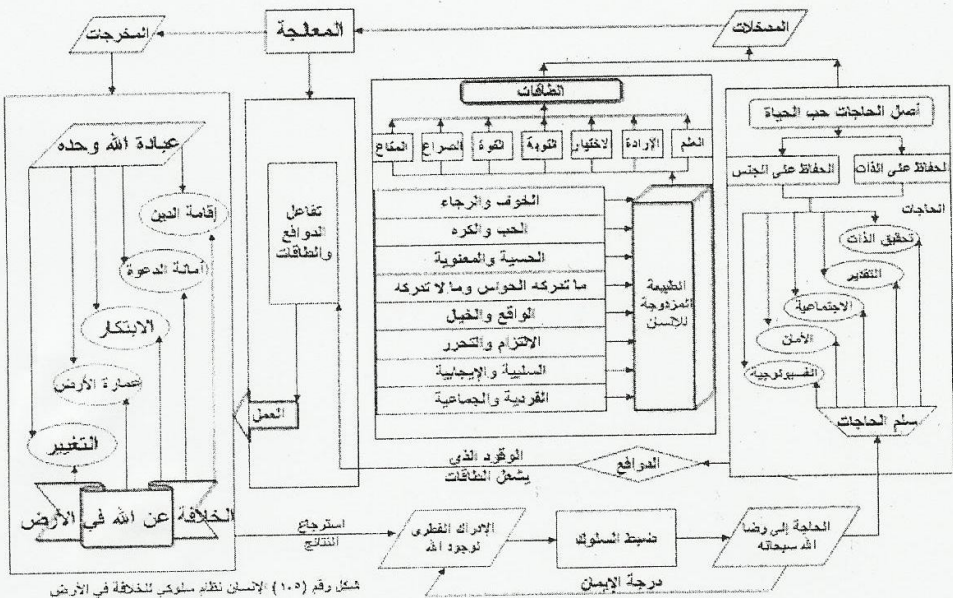 المدخلات
المعالجة
المخرجات
أصل الحاجات حب الحياة
الحفاظ على الذات
الحفاظ على الجنس
الحاجات
تحقيق الذات
التقدير
الاجتماعية
الأمان
الفسيولوجية
سلم الحاجات
الطاقات
العلم
الإرادة
الاختيار
التوبة
القوة
الصراع
المتاع
الطبيعة
المزدوجة
للإنسان
الخوف والرجاء
الحب والكره
الحسية والمعنوية
ما تدركه الحواس وما لا تدركه
الواقع والخيال
الالتزام والتحرر
السلبية والإيجابية
الفردية والجماعية
الدوافع
الوقود الذى
يشعل الطاقات
تفاعل
الدوافع
والطاقات
العمل
عبادة الله وحده
إقامة الدين
أمانة الدعوة
الابتكار
عمارة الأرض
التغيير
الخلافة عن الله في الأرض
استرجاع
النتائج
الإدراك الفطرى
لوجود الله
ضبط السلوك
الحاجة إلى رضا
الله سبحانه
درجة الإيمان
شكل رقم (١٠٥) الإنسان نظام سلوكي للخلافة في الأرض